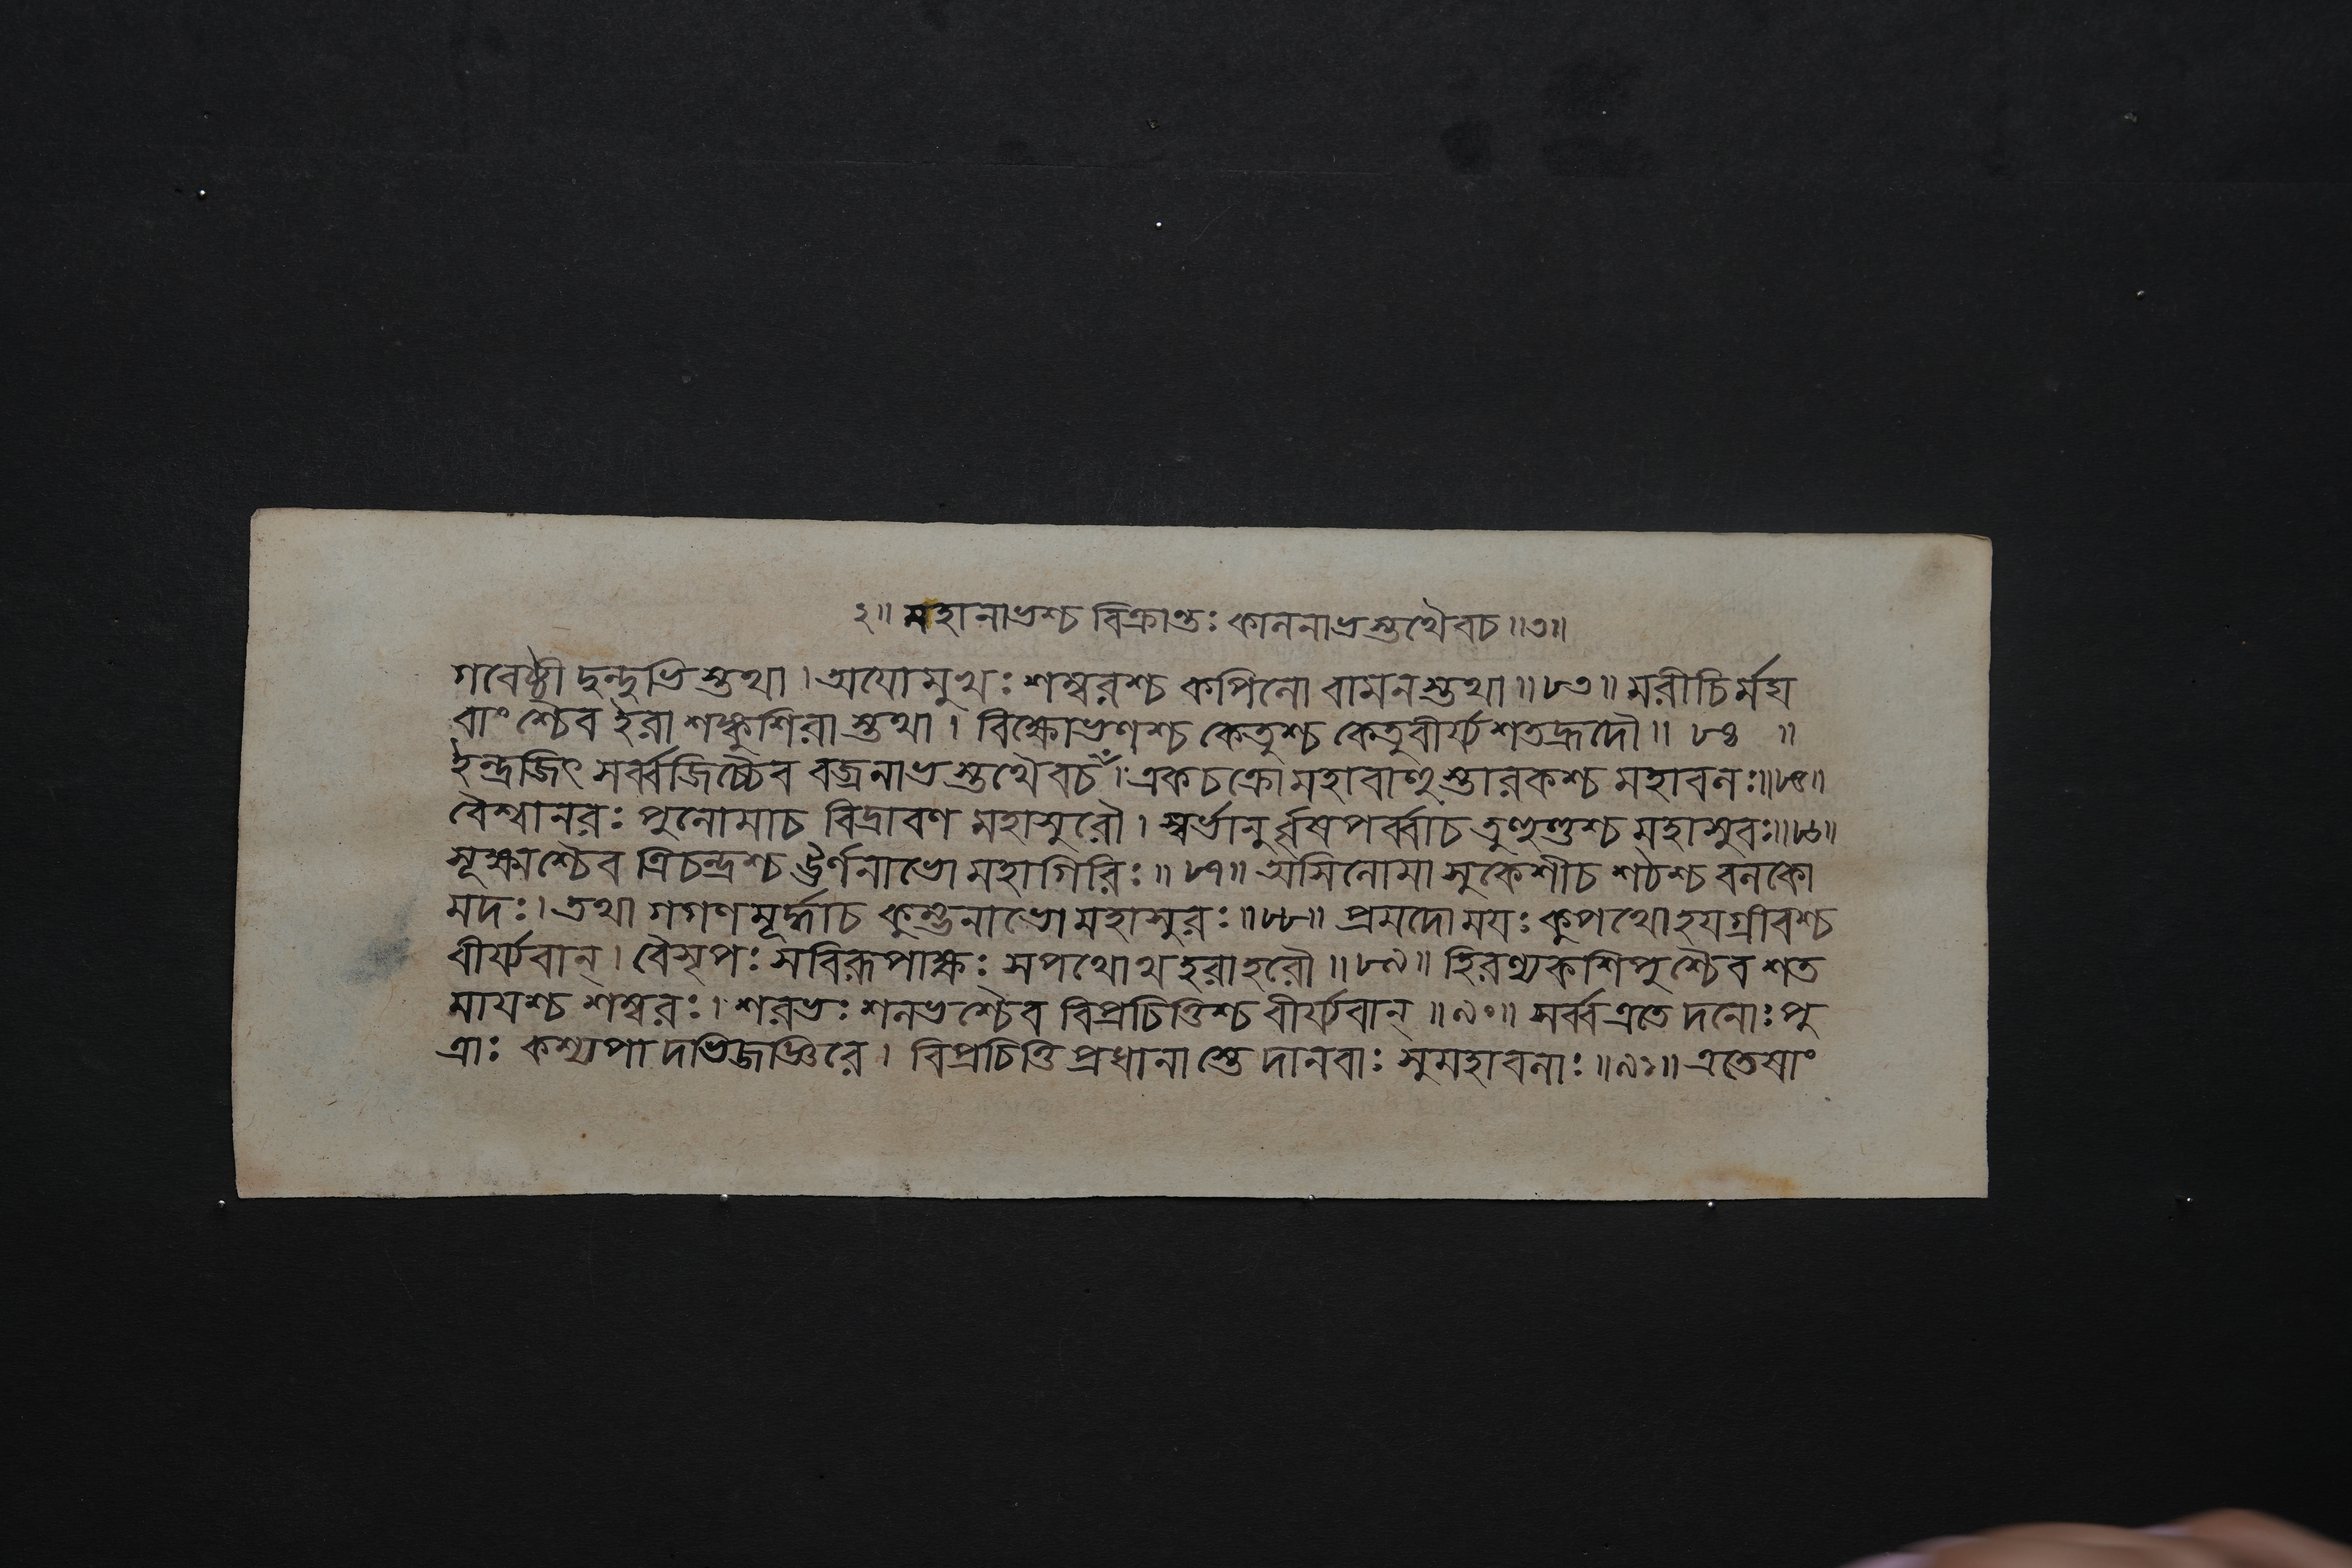 ২॥ মহানাভশ্চ বিক্রান্তঃ কাননাভস্তথৈবচ॥৩॥
গবেষ্ঠী দুন্দুভিস্তথা। অযোমুখঃ শম্বরশ্চ কপিনো বামনস্তথা॥৮৩॥ মরীচির্মদ্য
বাংশ্চৈব ইরা শঙ্কুশিরাস্তথা। বিক্ষোভণশ্চ কেতুশ্চ কেতুবীর্য্যশতহ্রদৌ॥ ৮৪ ॥
ইন্দ্রজিৎ সর্ব্বজিচ্চৈব বজ্রনাভস্তথৈবচ। একচক্রো মহাবাণুস্তারকশ্চ মহাবনঃ॥৮৫॥
বৈশ্বানরঃ পুনোমাচ বিদ্রাবণ মহাসুরৌ। স্বর্ভানুর্ব্বৃষপর্ব্বাচ তুণ্ডুণ্ডশ্চ মহাসুবঃ॥৮৬॥
সূক্ষ্মাশ্চৈব ত্রিচন্দ্রশ্চ ঊর্ণনাভো মহাগিরিঃ॥ ৮৭॥ অসিনোমা সুকেশীচ শঠশ্চ বনকো
মদঃ। তথা গগণমূর্দ্ধাচ কুম্ভনাভো মহাসুরঃ॥৮৮॥ প্রমদো ময়ঃ কুপথো হযগ্রীবশ্চ
বীর্য্যবান্। বৈসৃপঃ সবিরূপাক্ষঃ সপথোথ হরাহরৌ॥৮৯॥ হিরণ্যকশিপুশ্চৈব শত
মাযশ্চ শম্বরঃ। শরভঃ শনভশ্চৈব বিপ্রচিত্তিশ্চ বীর্য্যবান্॥৯০॥ সর্ব্ব এতে দনোঃ পু
ত্রাঃ কশ্যপাদভিজজ্ঞিরে। বিপ্রচিত্তি প্রধানাস্তে দানবাঃ সুমহাবনাঃ॥৯১॥ এতেষাং